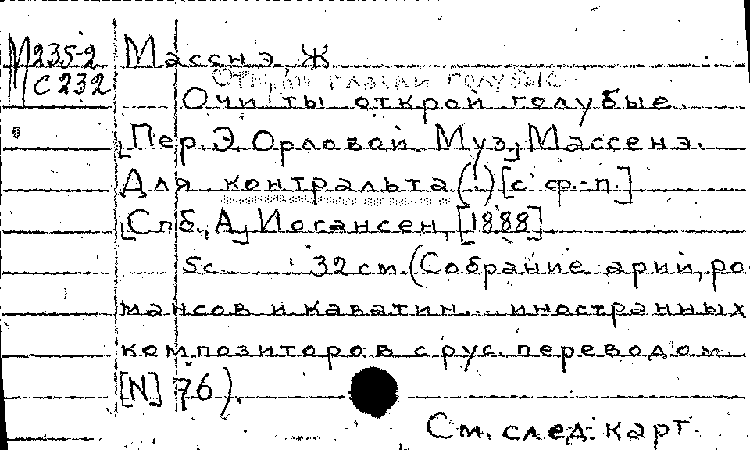 М 235-2 Массне, Ж
С 232
Открой глазки голубые
Очи ты открой голубые.
[Пер. Э. Орловой. Муз.] Массенэ.
Для контральта (!) [с ф.-п.]
[Спб., А.] Иогансен, [1888].
5с. 32 см. (Собрание арий, ро-
мансов и каватин... иностранных
композиторов с рус. переводом
[N] 76).
См. след. карт.